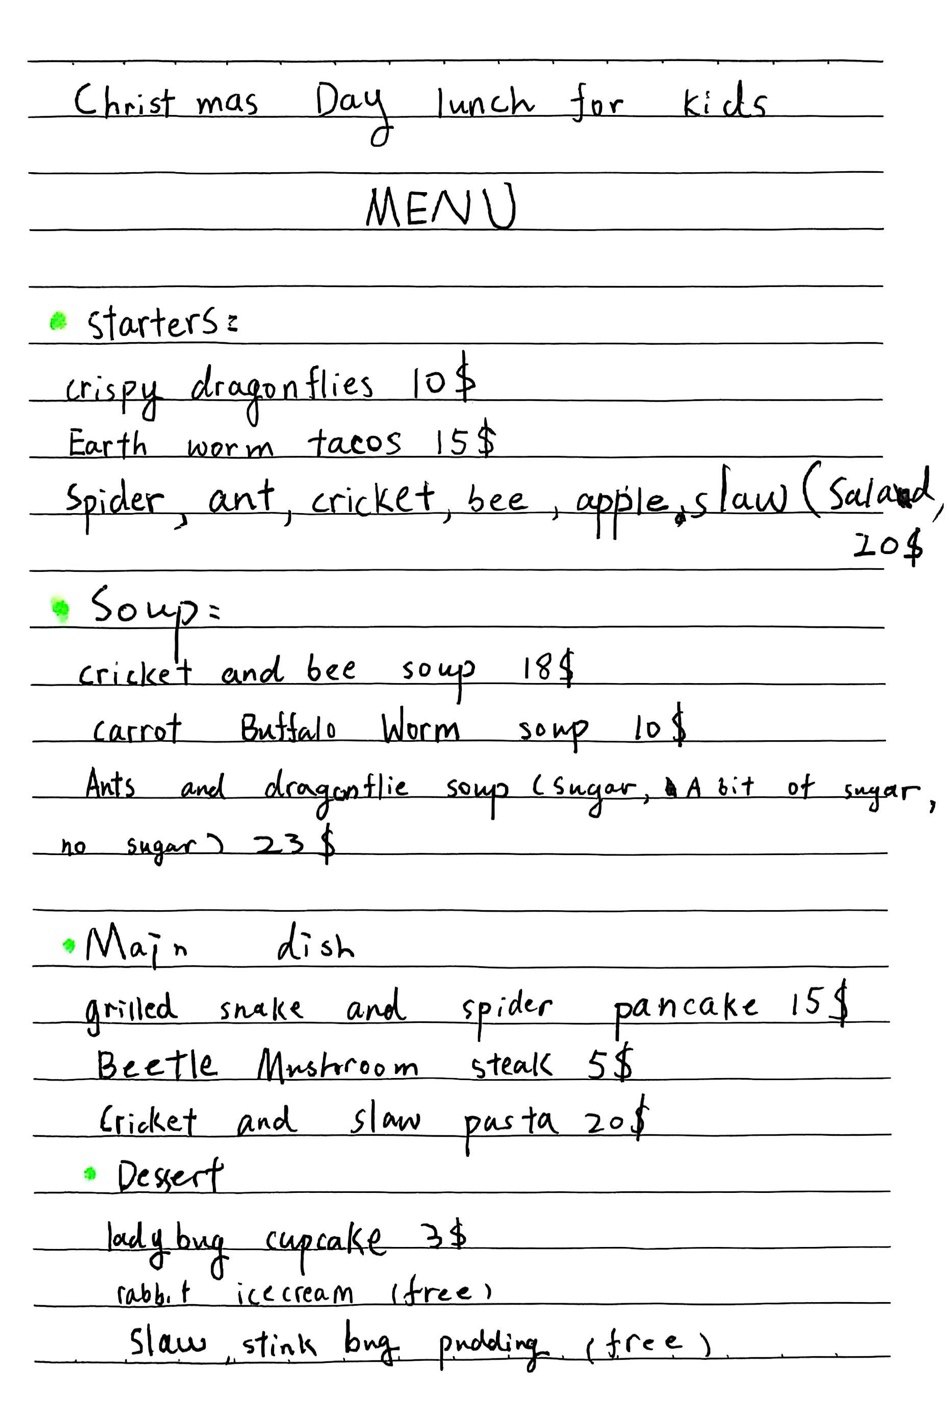 Christmas Day lunch for kids
MENU
• starters:
crispy dragonflies 10$
Earth worm tacos 15$
Spider, ant, cricket, bee, apple, slaw (Salad,
20$
• Soup:
cricket and bee soup 18$
carrot Buffalo Worm soup 10$
Ants and dragonflie soup (sugar, A bit of sugar,
no sugar) 23$
• Main dish
grilled snake and spider pancake 15$
Beetle Mushroom steak 5$
Cricket and slaw pasta 20$
• Dessert
lady bug cupcake 3$
rabbit icecream (free)
Slaw, stink bug pudding (free)